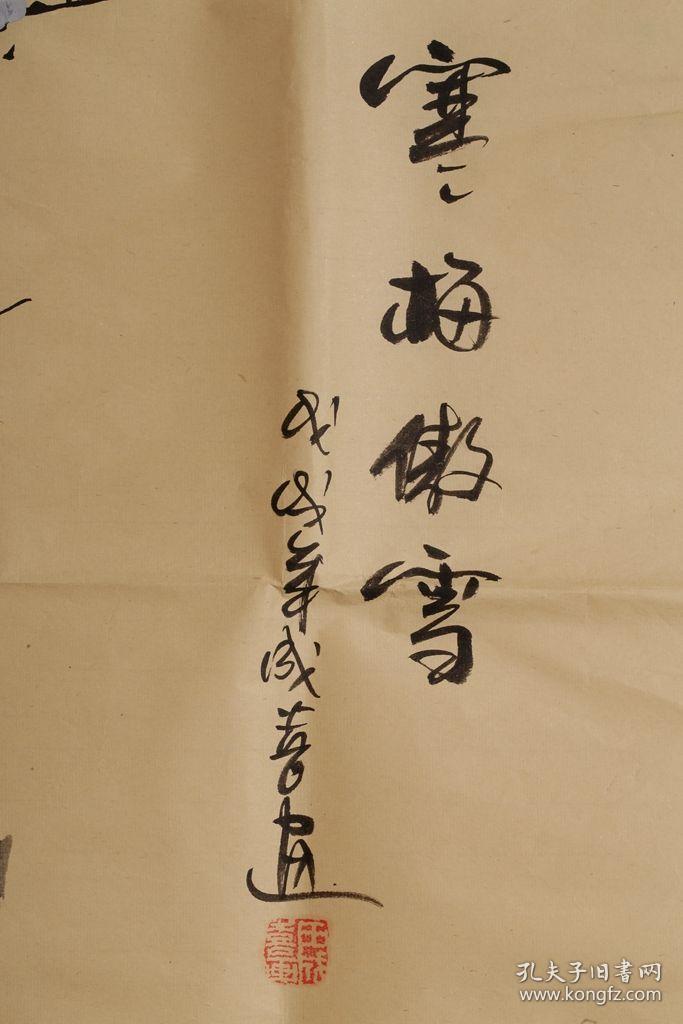 寒梅傲雪
戊戌年成
孔夫子旧书网
www.kongfz.com